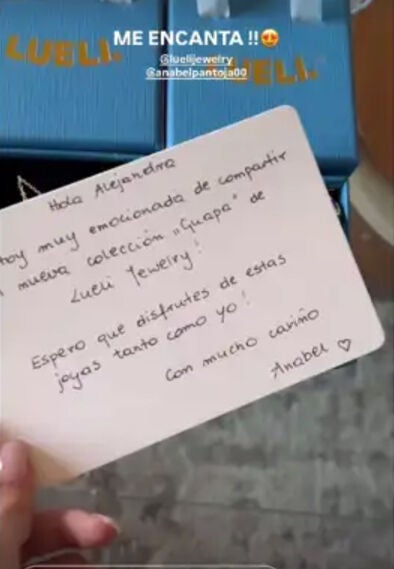 ME ENCANTA !!😍
@luelijewelry
@anabelpantoja00
LUELI
UELI
Hola Alejandra
toy muy emocionada de compartir
nueva colección "Guapa" de
Lueli Jewelry!
Espero que disfrutes de estas
joyas tanto como yo!
Con mucho cariño
Anabel ♡